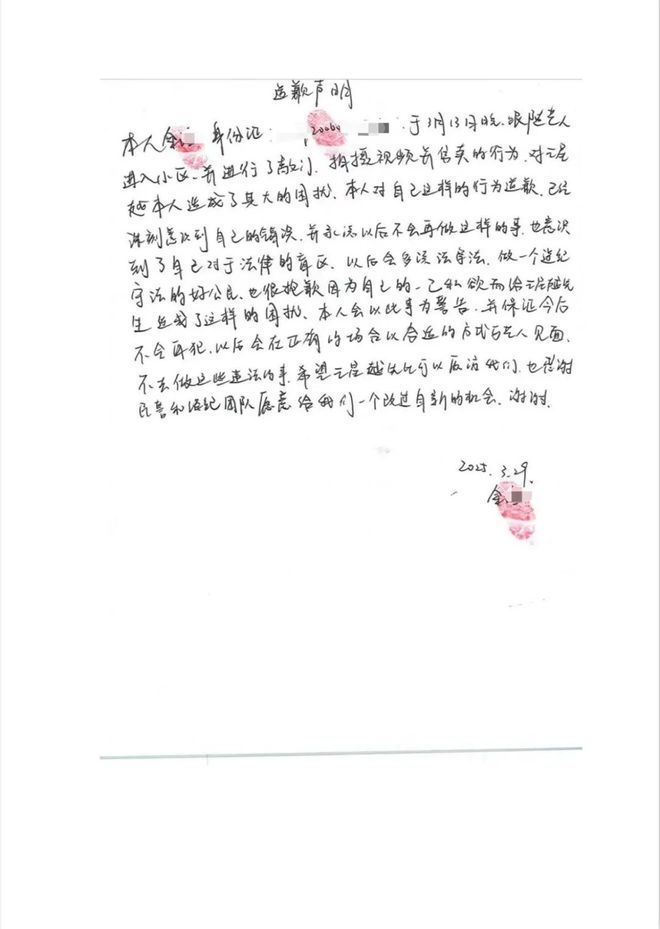 道歉声明
本人金 身份证: 于3月13日晚.跟随艺人
进入小区.并进行了敲门.拍摄视频并售卖的行为.对王星
越本人造成了莫大的困扰.本人对自己这样的行为道歉.已经
深刻意识到自己的错误.并承诺以后不会再做这样的事.也意识
到了自己对于法律的盲区.以后会多读法守法.做一个遵纪
守法的好公民.也很抱歉因为自己的一己私欲而给王星越先
生造成了这样的困扰.本人会以此事为警告.并保证今后
不会再犯.以后会在正确的场合以合适的方式与艺人见面.
不去做这些违法的事.希望王星越先生可以原谅我们.也感谢
民警和经纪团队愿意给我们一个改过自新的机会.谢谢.
2025.3.29.
金